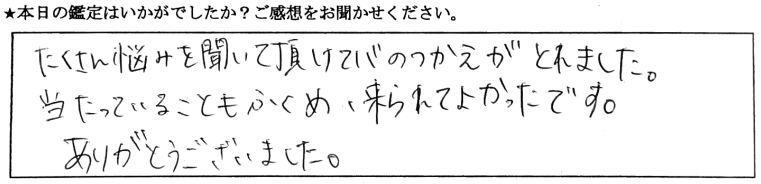 ★本日の鑑定はいかがでしたか？ご感想をお聞かせください。
たくさん悩みを聞いて頂けて心のつかえがとれました。
当たっていることもふくめ、来られてよかったです。
ありがとうございました。